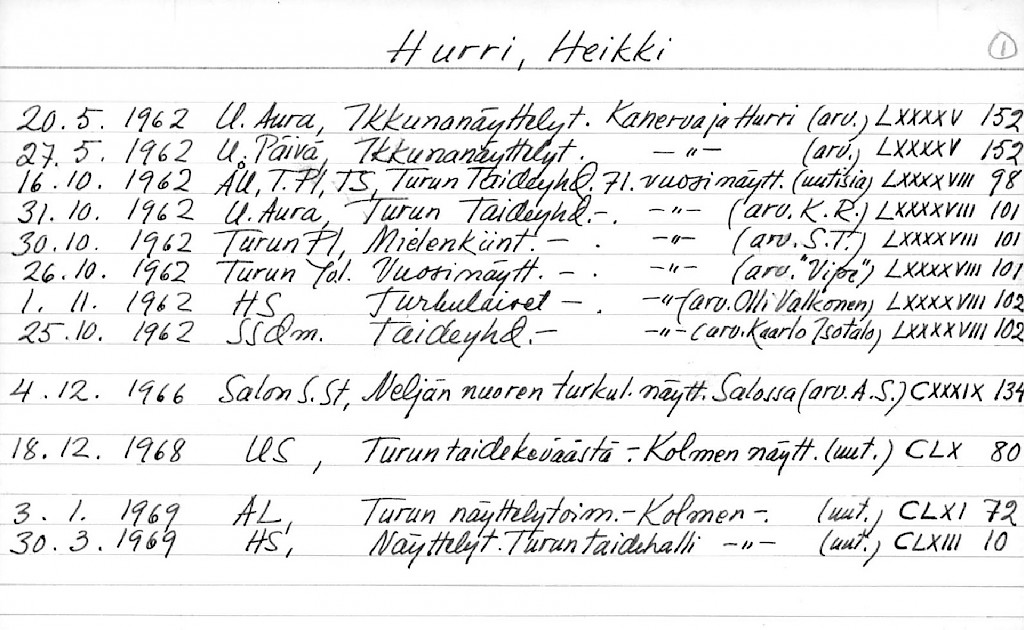 Hurri, Heikki 1
20.5. 1962 U. Aura, Ikkunanäyttelyt. Kanerva ja Hurri (arv.) LXXXXV 152
27.5. 1962 U. Päivä, Ikkunanäyttelyt. -"- (arv.) LXXXXV 152
16.10. 1962 ÅU, T.Pl, TS, Turun Taideyhd. 71. vuosinäytt. (uutisia) LXXXXVIII 98
31.10. 1962 U. Aura, Turun Taideyhd.-. -"- (arv. K.R.) LXXXXVIII 101
30.10. 1962 Turun Pl, Mielenkiint. - . -"- (arv. S.T.) LXXXXVIII 101
26.10. 1962 Turun Yol. Vuosinäytt. - . -"- (arv. ) LXXXXVIII 101
1. 11. 1962 HS Turkulaiset - . -"- (arv. Olli Valkonen) LXXXXVIII 102
25.10. 1962 SSdm. Taideyhd. - -"- (arv. Kaarlo Isotalo) LXXXXVIII 102
4.12. 1966 Salon S. St, Neljän nuoren turkul. näytt. Salossa (arv. A.S.) CXXXIX 134
18.12. 1968 US, Turun taidekeväästä - Kolmen näytt. (uut.) CLX 80
3. 1. 1969 AL, Turun näyttelytoim. - Kolmen -. (uut.) CLXI 72
30.3. 1969 HS, Näyttelyt. Turun taidehalli -"- (uut.) CLXIII 10